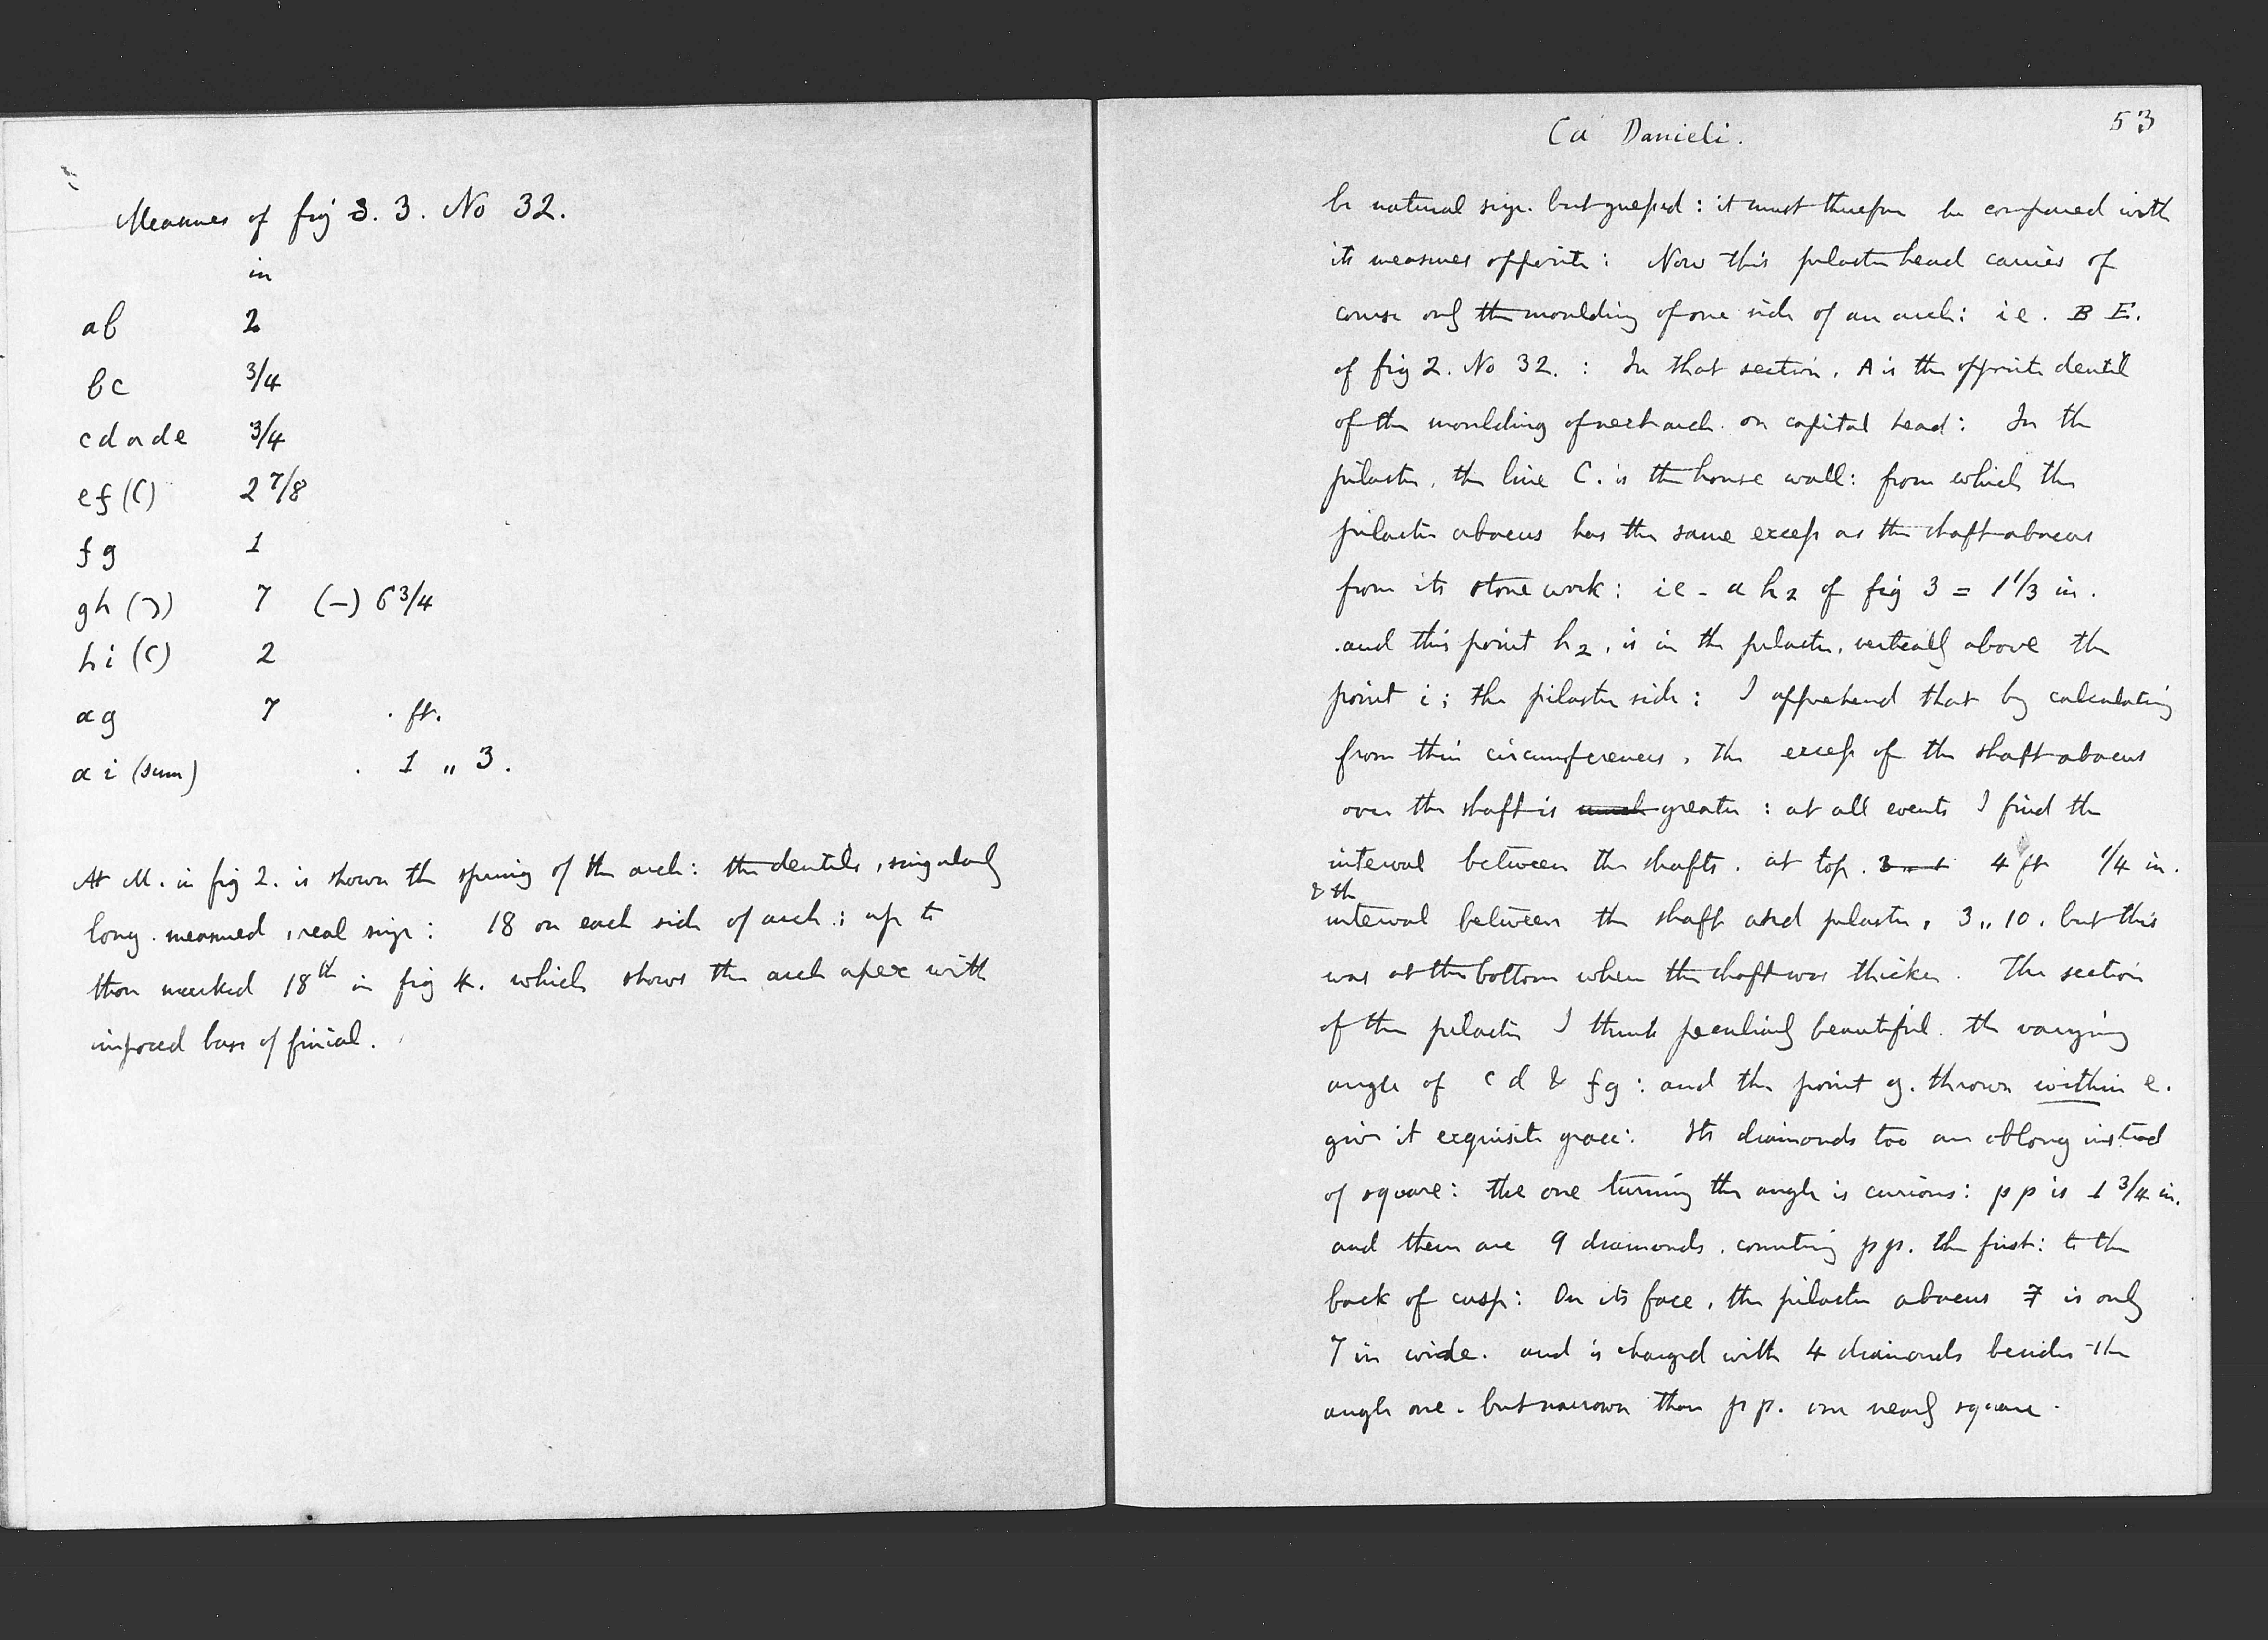 Measures of fig 3. 3. No 32.
in
ab 2
bc 3/4
cd or de 3/4
ef (() 2 7/8
fg 1
gh ()) 7 (-) 6 3/4
hi (() 2
ag 7 . ft.
a i (sum) . 1 „ 3.
At M. in fig 2. is shown the spring of the arch: the dentils, singularly
long. measured, real size: 18 on each side of arch: up to
those marked 18th in fig 4. which shows the arch apex with
imposed base of finial.
Ca Danieli.
53
be natural size. but guessed: it must therefore be compared with
its measures opposite: Now this pilaster head carries of
course only the moulding of one side of an arch: ie. B E.
of fig 2. No 32. : In that section, A is the opposite dentil
of the moulding of next arch. on capital head: In the
pilaster, the line C. is the house wall: from which the
pilaster abacus has the same excess as the shaft abacus
from its stone work: ie - a h2 of fig 3 = 1 1/3 in.
and this point h2, is in the pilaster, vertically above the
point i; the pilaster side: I apprehend that by calculating
from their circumferences, the excess of the shaft abacus
over the shaft is much greater: at all events I find the
interval between the shafts. at top. 3 „ 1 4 ft 1/4 in.
& the
interval between the shaft and pilaster, 3 „ 10. but this
was at the bottom where the shaft was thicker. The section
of the pilaster I think peculiarly beautiful. the varying
angle of c d & fg: and the point g. thrown within e.
give it exquisite grace: Its diamonds too are oblong instead
of square: the one turning the angle is curious: p p is 1 3/4 in.
and there are 9 diamonds. counting p p. the first: to the
back of cusp: On its face, the pilaster abacus 7 is only
7 in wide. and is charged with 4 diamonds besides the
angle one. but narrower than p p. nearly square.